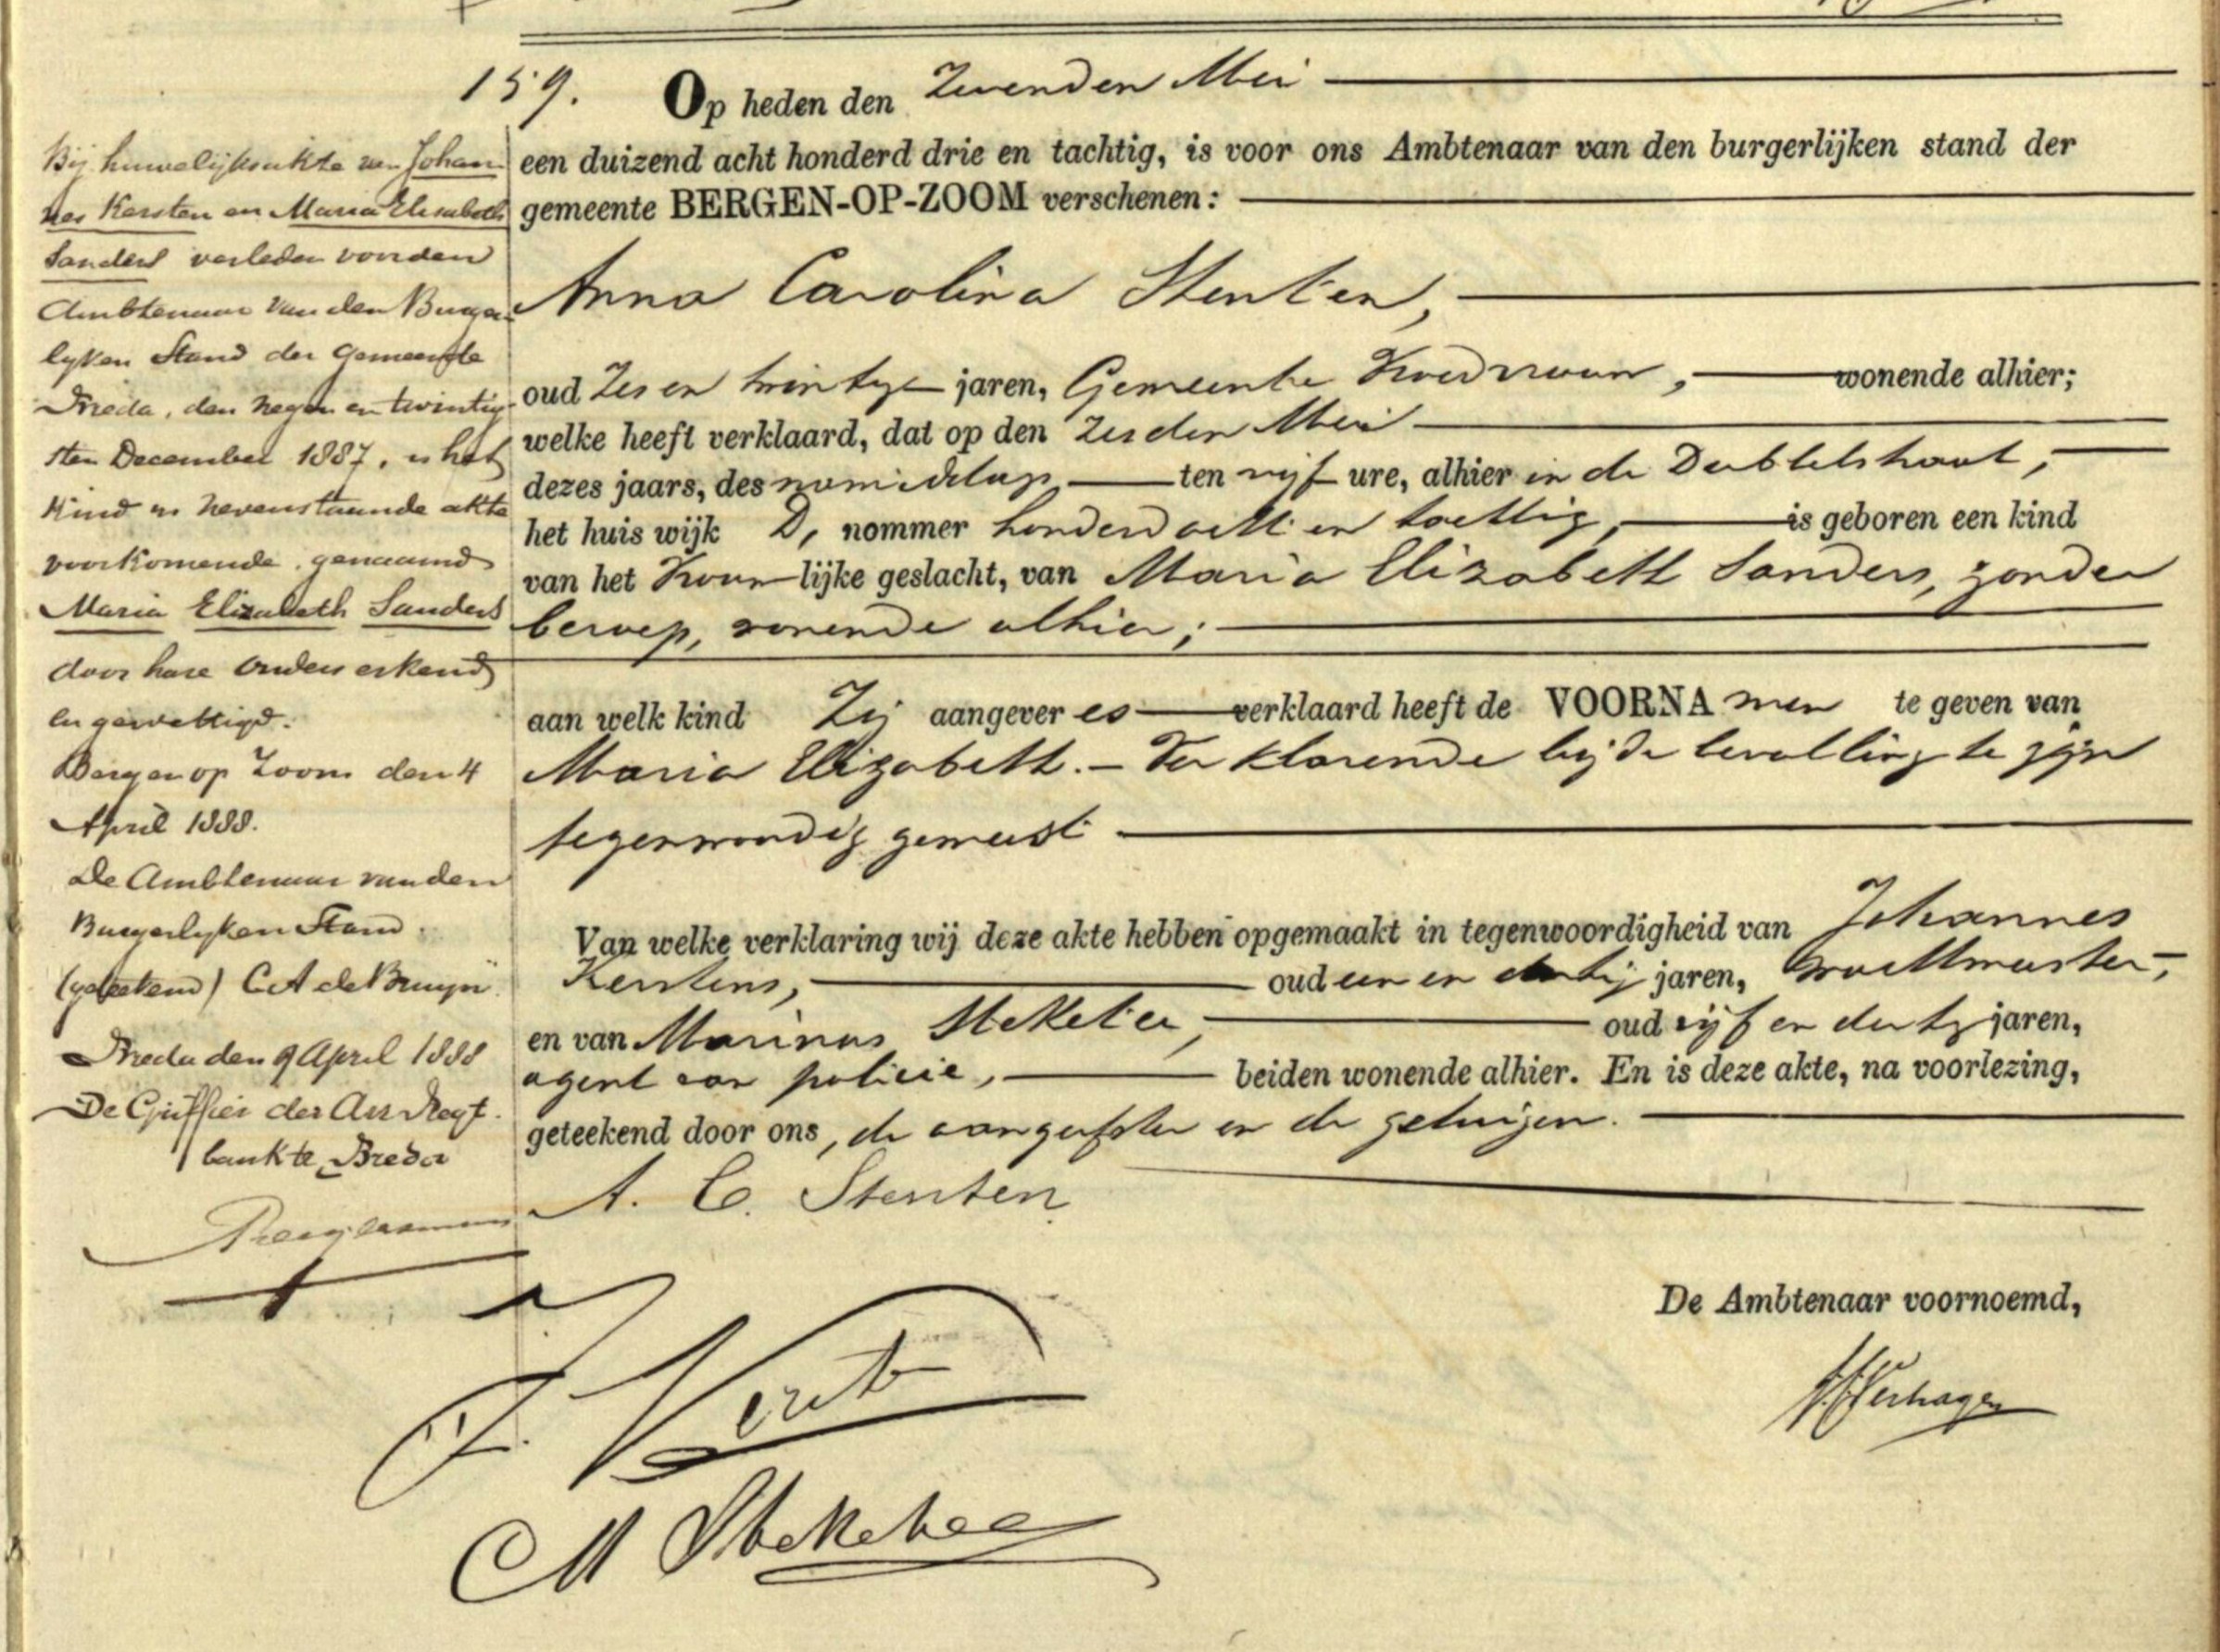 159.
Op heden den Zevenden Mei
een duizend acht honderd drie en tachtig, is voor ons Ambtenaar van den burgerlijken stand der
gemeente BERGEN-OP-ZOOM verschenen:
Anna Carolina Stenten,
oud zes en twintig jaren, Gemeente Vroedvrouw, wonende alhier;
welke heeft verklaard, dat op den zesden Mei
dezes jaars, des namiddags ten vijf ure, alhier in de
het huis wijk D, nommer honderd acht en tachtig, is geboren een kind
van het vrouwlijke geslacht, van Maria Elizabeth Sanders, zonder
beroep, wonende alhier;
aan welk kind Zij aangeveres verklaard heeft de VOORNAmen te geven van
Maria Elizabeth. – Verklarende bij de bevalling te zijn
tegenwoordig geweest
Van welke verklaring wij deze akte hebben opgemaakt in tegenwoordigheid van Johannes
Kerstens, oud een en dertig jaren,
en van Marinus Steketee, oud vijf en dertig jaren,
agent van policie, beiden wonende alhier. En is deze akte, na voorlezing,
geteekend door ons, de aangeefster en de getuigen.
A. C. Stenten
De Ambtenaar voornoemd,
Verhagen
M Steketee
Bij huwelijksakte van Johan
nes Kersten en Maria Elisabeth
Sanders verleden voor den
Ambtenaar van den Burger
lyken Stand der Gemeente
Breda, den negen en twintig
sten December 1887, is het
Kind in nevenstaande akte
voorkomende, genaamd
Maria Elizabeth Sanders
door hare Ouders erkend
en gewettigd.
Bergen op Zoom den 4
April 1888.
De Ambtenaar van den
Burgerlyken Stand.
(geteekend) C A de Bruyn
Breda den 9 April 1888
De Griffier der Arr Regt.
bank te Breda